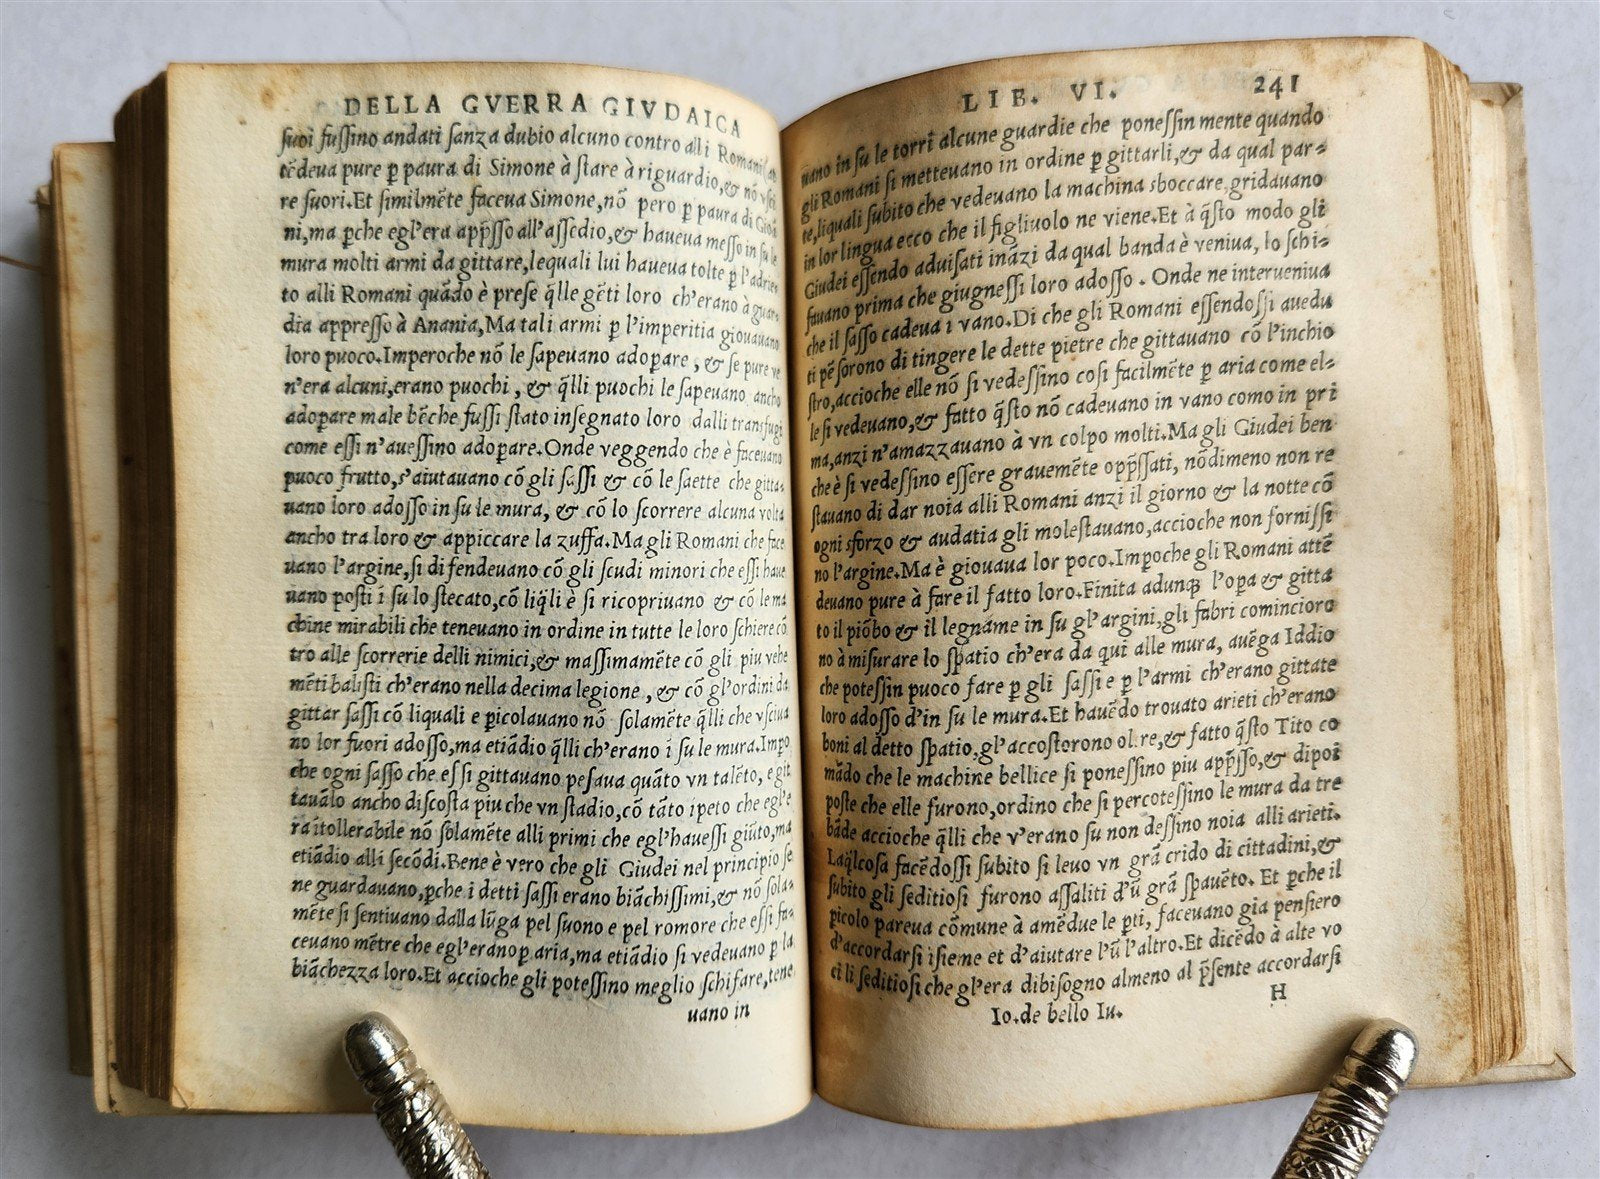 DELLA GVERRA GIVDAICA
ſuoi fuſſino andati ſanza dubio alcuno contro alli Romani
tẽdeua pure ꝑ paura di Simone à ſtare à riguardio, & nõ vſci
re fuori. Et ſimilmẽte faceua Simone, nõ pero ꝑ paura di Gioã
ni, ma ꝑche egl'era app̃ſſo all'aſſedio, & haueua meſſo in ſu le
mura molti armi da gittare, lequali lui haueua tolte ꝑ l'adrie
to alli Romani quãdo è preſe q̃lle gẽti loro ch'erano à guar-
dia appreſſo à Anania, Ma tali armi ꝑ l'imperitia giouauano
loro puoco. Imperoche nõ le ſapeuano adoꝑare, & ſe pure ve
n'era alcuni, erano puochi, & q̃lli puochi le ſapeuano ancho
adoꝑare male bẽche fuſſi ſtato inſegnato loro dalli transfugi
come eſſi n'aueſſino adoꝑare. Onde veggendo che è faceuano
puoco frutto, s'aiutauano cõ gli ſaſſi & cõ le ſaette che gitta-
uano loro adoſſo in ſu le mura, & cõ lo ſcorrere alcuna volta
ancho tra loro & appiccare la zuffa. Ma gli Romani che face
uano l'argine, ſi difendeuano cõ gli ſcudi minori che eſſi haue
uano poſti i ſu lo ſtecato, cõ liq̃li è ſi ricopriuano & cõ le ma
chine mirabili che teneuano in ordine in tutte le loro ſchiere cõ
tro alle ſcorrerie delli nimici, & maſſimamẽte cõ gli piu vehe
mẽti baliſti ch'erano nella decima legione, & cõ gl'ordini da
gittar ſaſſi cõ liquali e ꝑicolauano nõ ſolamẽte q̃lli che vſciua
no lor fuori adoſſo, ma etiãdio q̃lli ch'erano i ſu le mura. Impo
che ogni ſaſſo che eſſi gittauano peſaua quãto vn talẽto, e git
tauãlo ancho diſcoſta piu che vn ſtadio, cõ tãto ipeto che egl'e
ra ĩtollerabile nõ ſolamẽte alli primi che egl'haueſſi giũto, ma
etiãdio alli ſecõdi. Bene è vero che gli Giudei nel principio ſe
ne guardauano, ꝑche i detti ſaſſi erano biãchiſſimi, & nõ ſola-
mẽte ſi ſentiuano dalla lũga pel ſuono e pel romore che eſſi fa-
ceuano mẽtre che egl'erano ꝑ aria, ma etiãdio ſi vedeuano ꝑ la
biãchezza loro. Et accioche gli poteſſino meglio ſchifare, tene
uano in
LIB. VI. 241
uano in ſu le torri alcune guardie che poneſſin mente quando
gli Romani ſi metteuano in ordine ꝑ gittarli, & da qual par-
te, liquali ſubito che vedeuano la machina sboccare, gridauano
in lor lingua ecco che il figliuolo ne viene. Et à q̃ſto modo gli
Giudei eſſendo aduiſati inãzi da qual banda è veniua, lo ſchi-
fauano prima che giugneſſi loro adoſſo. Onde ne interueniua
che il ſaſſo cadeua i vano. Di che gli Romani eſſendoſſi auedu
ti pẽſorono di tingere le dette pietre che gittauano cõ l'inchio
ſtro, accioche elle nõ ſi vedeſſino coſi facilmẽte ꝑ aria come el-
le ſi vedeuano, & fatto q̃ſto nõ cadeuano in vano come in pri
ma, anzi n'amazzauano à vn colpo molti. Ma gli Giudei ben
che è ſi vedeſſino eſſere grauemẽte opp̃ſſati, nõdimeno non re
ſtauano di dar noia alli Romani anzi il giorno & la notte cõ
ogni sforzo & audatia gli moleſtauano, accioche non forniſſi
no l'argine. Ma è giouaua lor poco. Impoche gli Romani attẽ
deuano pure à fare il fatto loro. Finita adunq; l'opa & gitta
to il piõbo & il legname in ſu gl'argini, gli fabri comincioro
no à miſurare lo ſpatio ch'era da qui alle mura, auẽga Iddio
che poteſſin puoco fare ꝑ gli ſaſſi e ꝑ l'armi ch'erano gittate
loro adoſſo d'in ſu le mura. Et hauẽdo trouato arieti ch'erano
boni al detto ſpatio, gl'accoſtorono oltre, & fatto q̃ſto Tito co
mãdo che le machine bellice ſi poneſſino piu app̃ſſo, & dipoi
poſte che elle furono, ordino che ſi percoteſſino le mura da tre
bãde accioche q̃lli che v'erano ſu non deſſino noia alli arieti.
Laq̃lcoſa facẽdoſſi ſubito ſi leuo vn grã crido di cittadini, &
ſubito gli ſeditioſi furono aſſaliti d'ũ grã ſpauẽto. Et ꝑche il
ꝑicolo pareua cõmune à amẽdue le ꝑti, faceuano gia penſiero
d'accordarſi iſieme et d'aiutare l'ũ l'altro. Et dicẽdo à alte vo
ci li ſeditioſi che gl'era dibiſogno almeno al p̃ſente accordarſi
Io. de bello Iu. H